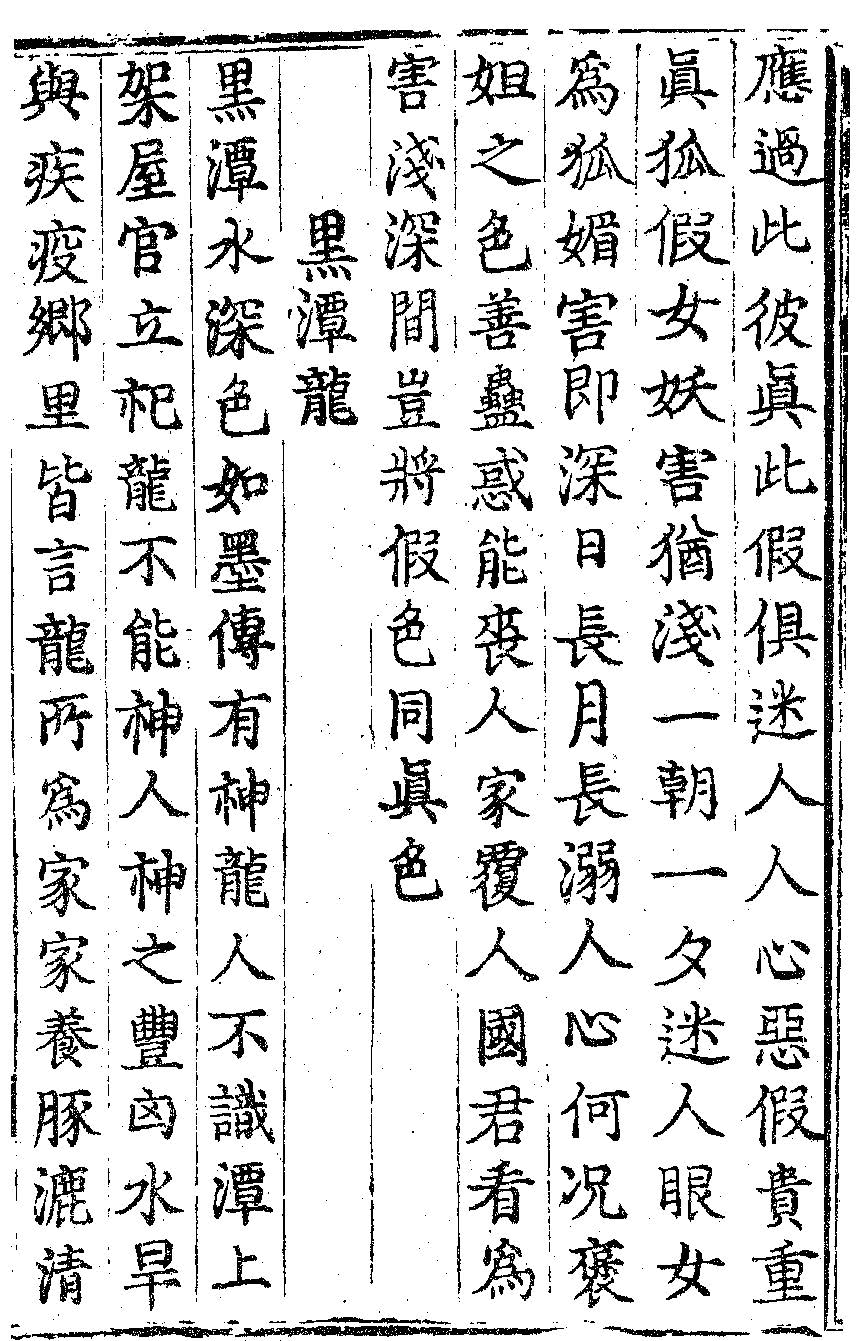 應過此彼眞此假俱迷人人心惡假貴重
眞狐假女妖害猶淺一朝一夕迷人眼女
爲狐媚害即深日長月長溺人心何况褒
妲之色善蠱惑能喪人家覆人國君看爲
害淺深間豈將假色同眞色
黒潭龍
黒潭水深色如墨傳有神龍人不識潭上
架屋官立祀龍不能神人神之豐㐫水旱
與疾疫鄉里皆言龍所爲家家養豚漉清